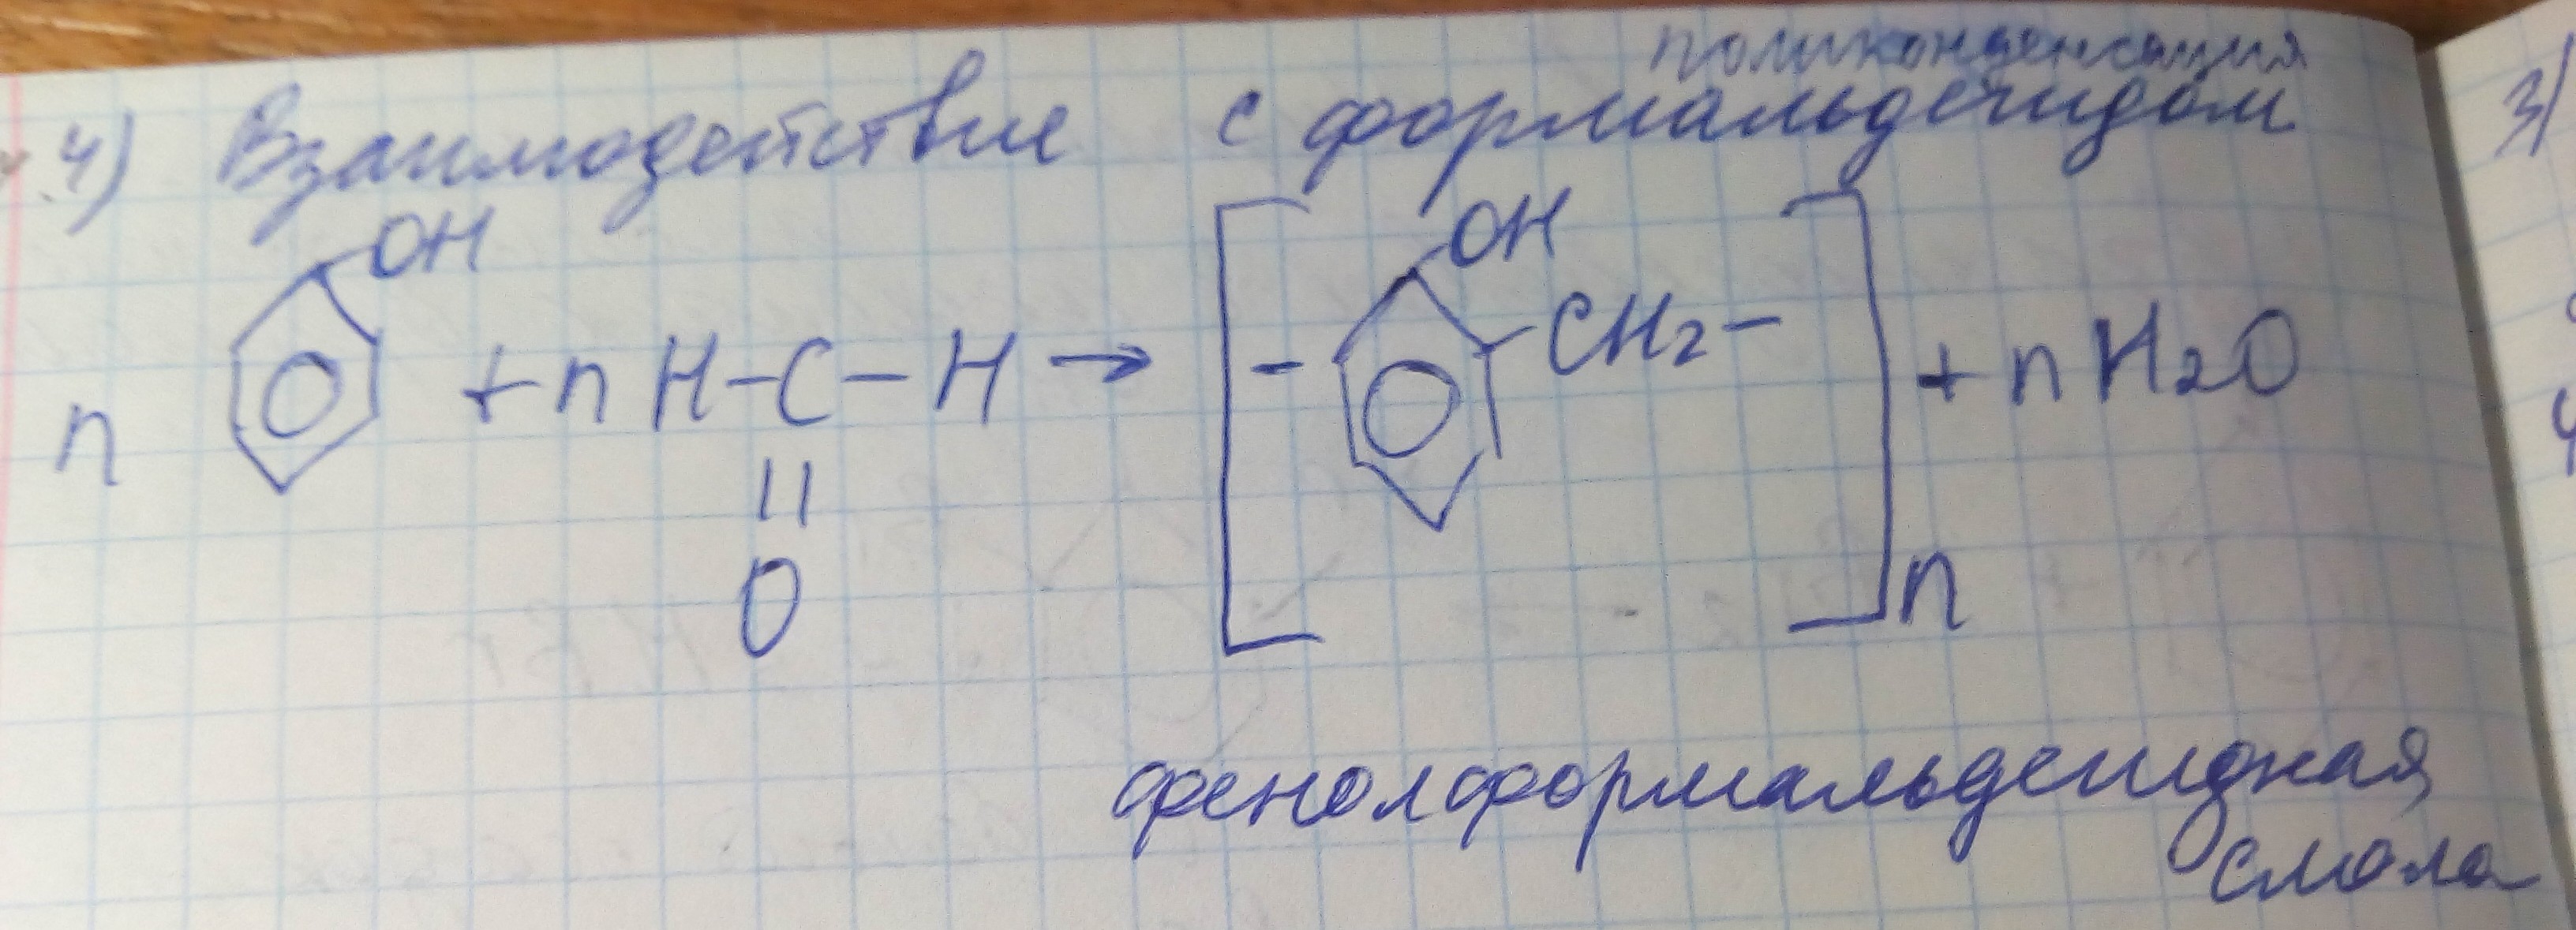 поликонденсация
4) Взаимодействие с формальдегидом
OH OH
n + n H-C-H → [ - CH2 - ]n + n H2O
||
O
фенолформальдегидная
смола
3)